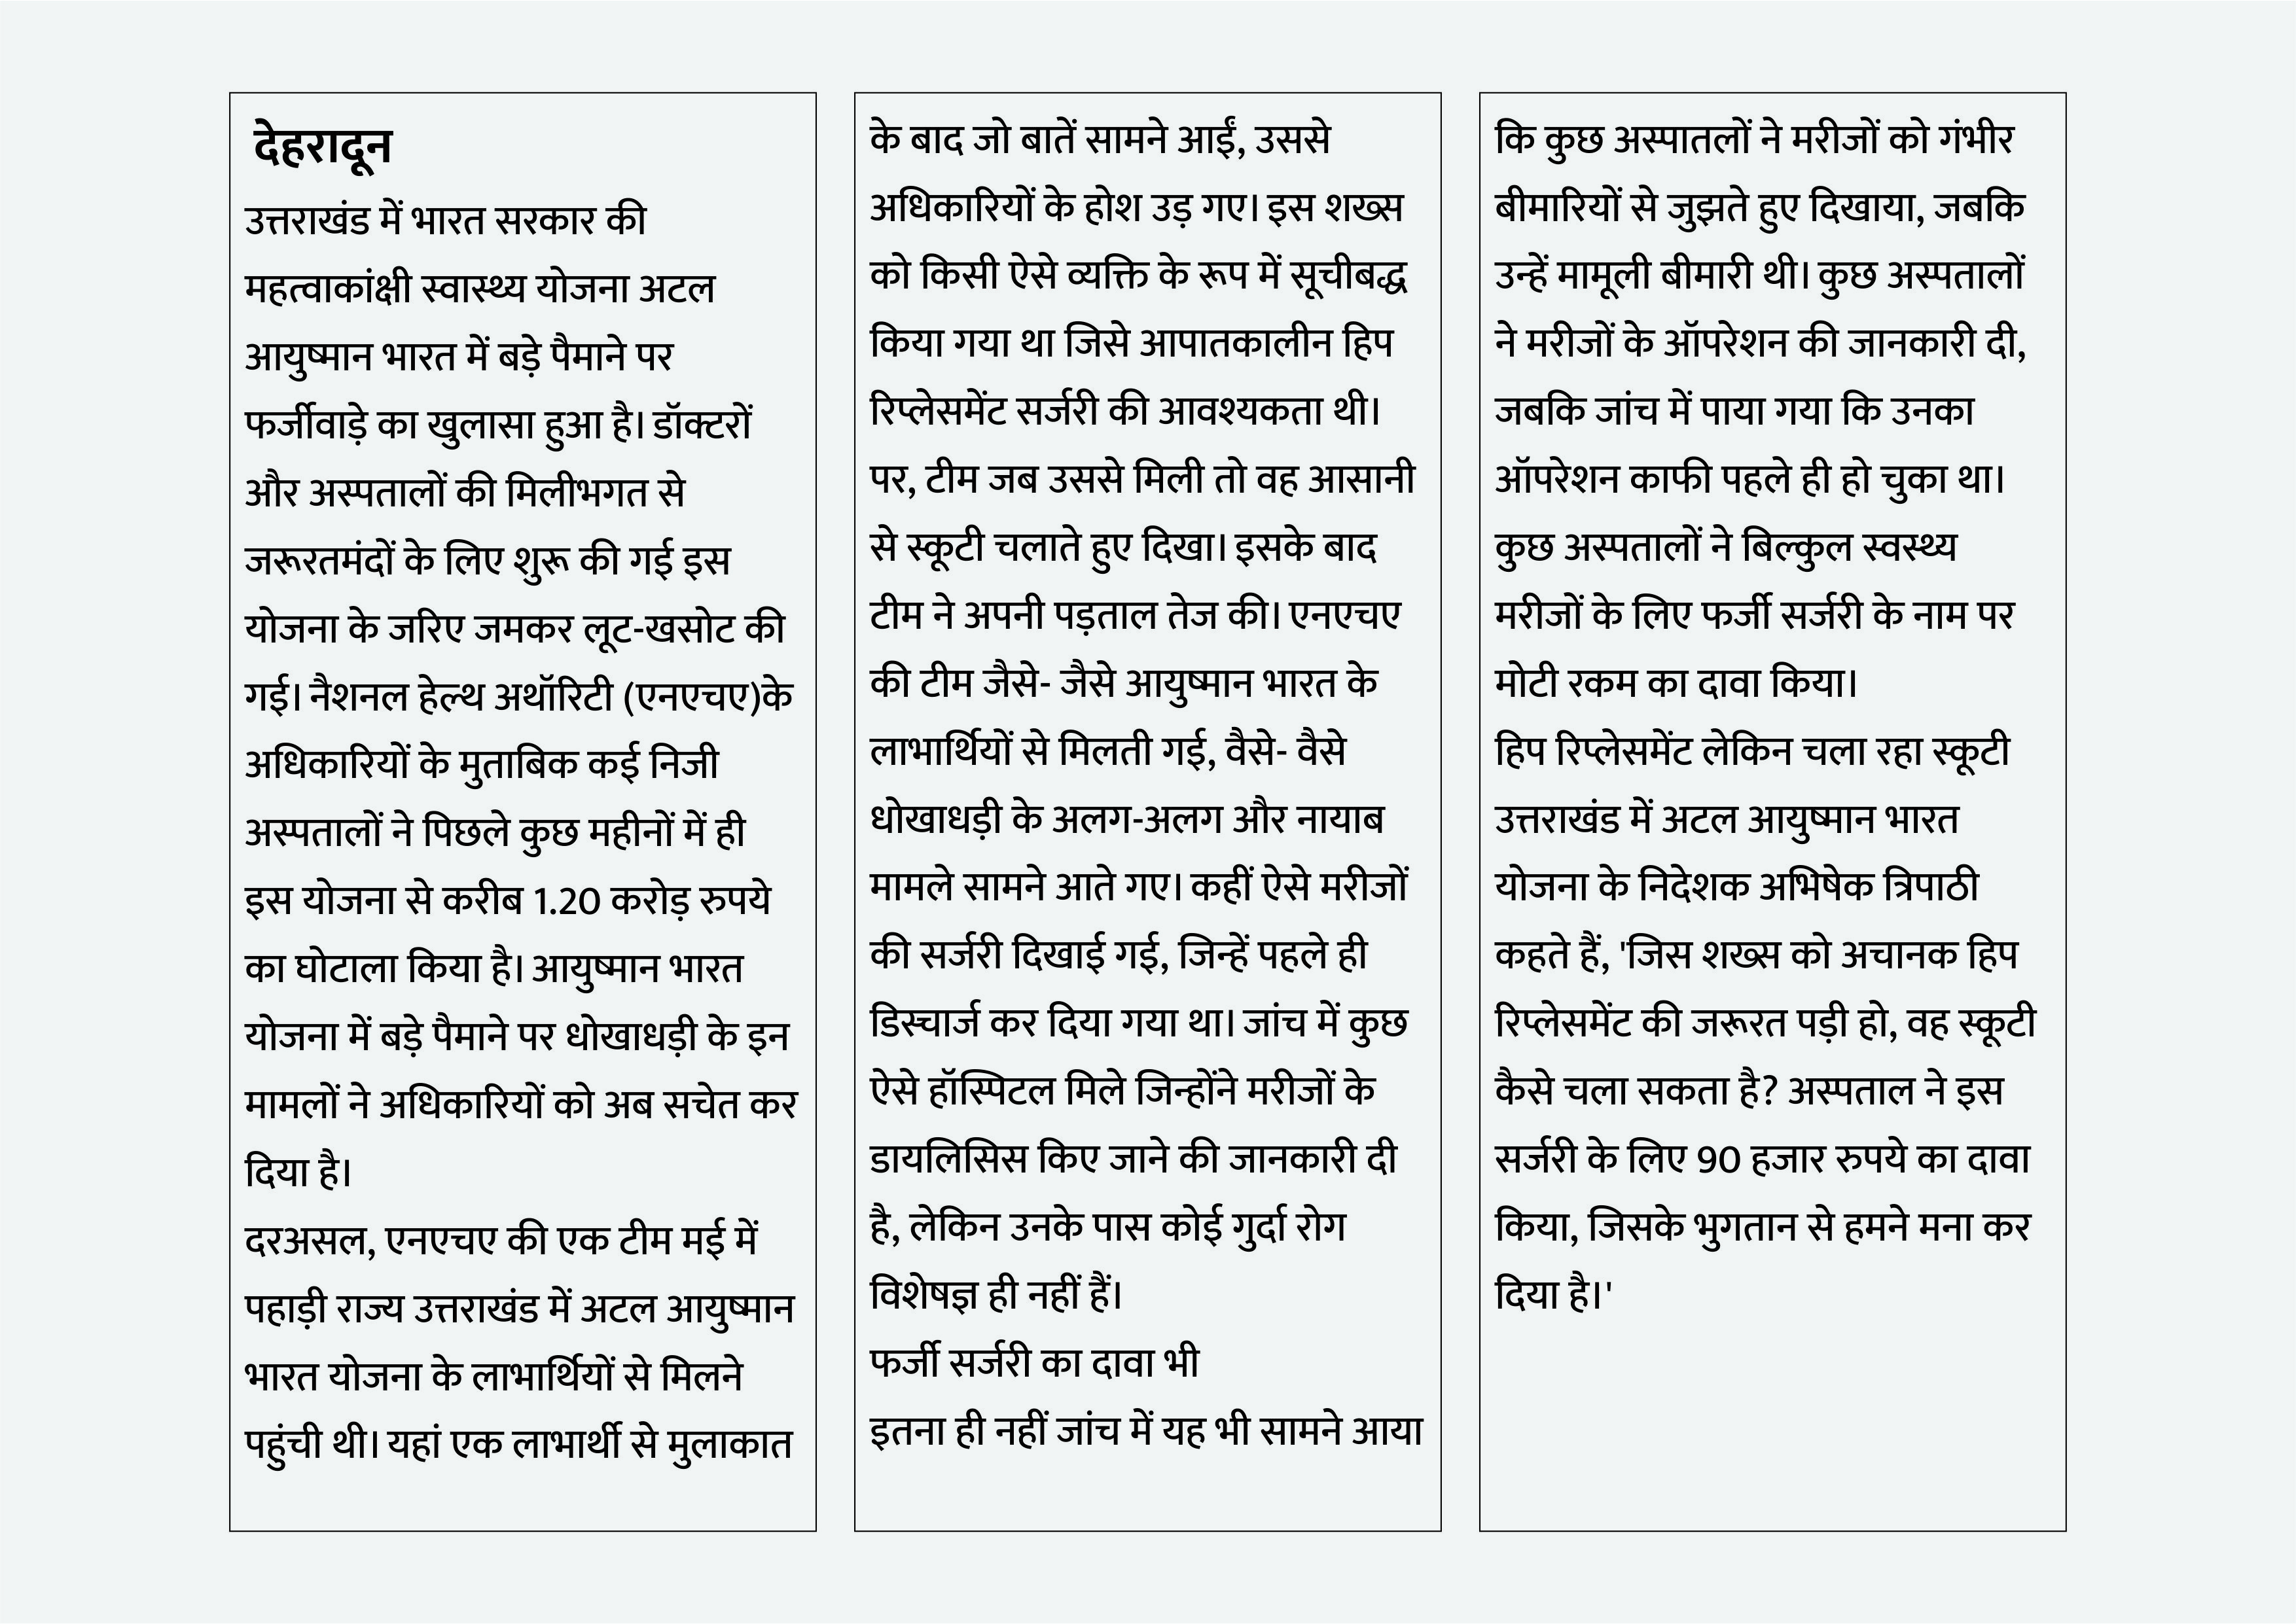 देहरादून
उत्तराखंड में भारत सरकार की
महत्वाकांक्षी स्वास्थ्य योजना अटल
आयुष्मान भारत में बड़े पैमाने पर
फर्जीवाड़े का खुलासा हुआ है। डॉक्टरों
और अस्पतालों की मिलीभगत से
जरूरतमंदों के लिए शुरू की गई इस
योजना के जरिए जमकर लूट-खसोट की
गई। नैशनल हेल्थ अथॉरिटी (एनएचए)के
अधिकारियों के मुताबिक कई निजी
अस्पतालों ने पिछले कुछ महीनों में ही
इस योजना से करीब 1.20 करोड़ रुपये
का घोटाला किया है। आयुष्मान भारत
योजना में बड़े पैमाने पर धोखाधड़ी के इन
मामलों ने अधिकारियों को अब सचेत कर
दिया है।
दरअसल, एनएचए की एक टीम मई में
पहाड़ी राज्य उत्तराखंड में अटल आयुष्मान
भारत योजना के लाभार्थियों से मिलने
पहुंची थी। यहां एक लाभार्थी से मुलाकात
के बाद जो बातें सामने आईं, उससे
अधिकारियों के होश उड़ गए। इस शख्स
को किसी ऐसे व्यक्ति के रूप में सूचीबद्ध
किया गया था जिसे आपातकालीन हिप
रिप्लेसमेंट सर्जरी की आवश्यकता थी।
पर, टीम जब उससे मिली तो वह आसानी
से स्कूटी चलाते हुए दिखा। इसके बाद
टीम ने अपनी पड़ताल तेज की। एनएचए
की टीम जैसे- जैसे आयुष्मान भारत के
लाभार्थियों से मिलती गई, वैसे- वैसे
धोखाधड़ी के अलग-अलग और नायाब
मामले सामने आते गए। कहीं ऐसे मरीजों
की सर्जरी दिखाई गई, जिन्हें पहले ही
डिस्चार्ज कर दिया गया था। जांच में कुछ
ऐसे हॉस्पिटल मिले जिन्होंने मरीजों के
डायलिसिस किए जाने की जानकारी दी
है, लेकिन उनके पास कोई गुर्दा रोग
विशेषज्ञ ही नहीं हैं।
फर्जी सर्जरी का दावा भी
इतना ही नहीं जांच में यह भी सामने आया
कि कुछ अस्पातलों ने मरीजों को गंभीर
बीमारियों से जुझते हुए दिखाया, जबकि
उन्हें मामूली बीमारी थी। कुछ अस्पतालों
ने मरीजों के ऑपरेशन की जानकारी दी,
जबकि जांच में पाया गया कि उनका
ऑपरेशन काफी पहले ही हो चुका था।
कुछ अस्पतालों ने बिल्कुल स्वस्थ्य
मरीजों के लिए फर्जी सर्जरी के नाम पर
मोटी रकम का दावा किया।
हिप रिप्लेसमेंट लेकिन चला रहा स्कूटी
उत्तराखंड में अटल आयुष्मान भारत
योजना के निदेशक अभिषेक त्रिपाठी
कहते हैं, 'जिस शख्स को अचानक हिप
रिप्लेसमेंट की जरूरत पड़ी हो, वह स्कूटी
कैसे चला सकता है? अस्पताल ने इस
सर्जरी के लिए 90 हजार रुपये का दावा
किया, जिसके भुगतान से हमने मना कर
दिया है।'